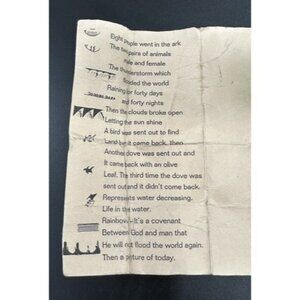 Eight people went in the ark
The two pairs of animals
male and female
The thunderstorm which
flooded the world
Raining for forty days
and forty nights
Then the clouds broke open
Letting the sun shine
A bird was sent out to find
Land but it came back, then
Another dove was sent out and
It came back with an olive
Leaf. The third time the dove was
sent out and it didn't come back.
Represents water decreasing.
Life in the water.
Rainbow - It's a covenant
Between God and man that
He will not flood the world again.
Then a picture of today.